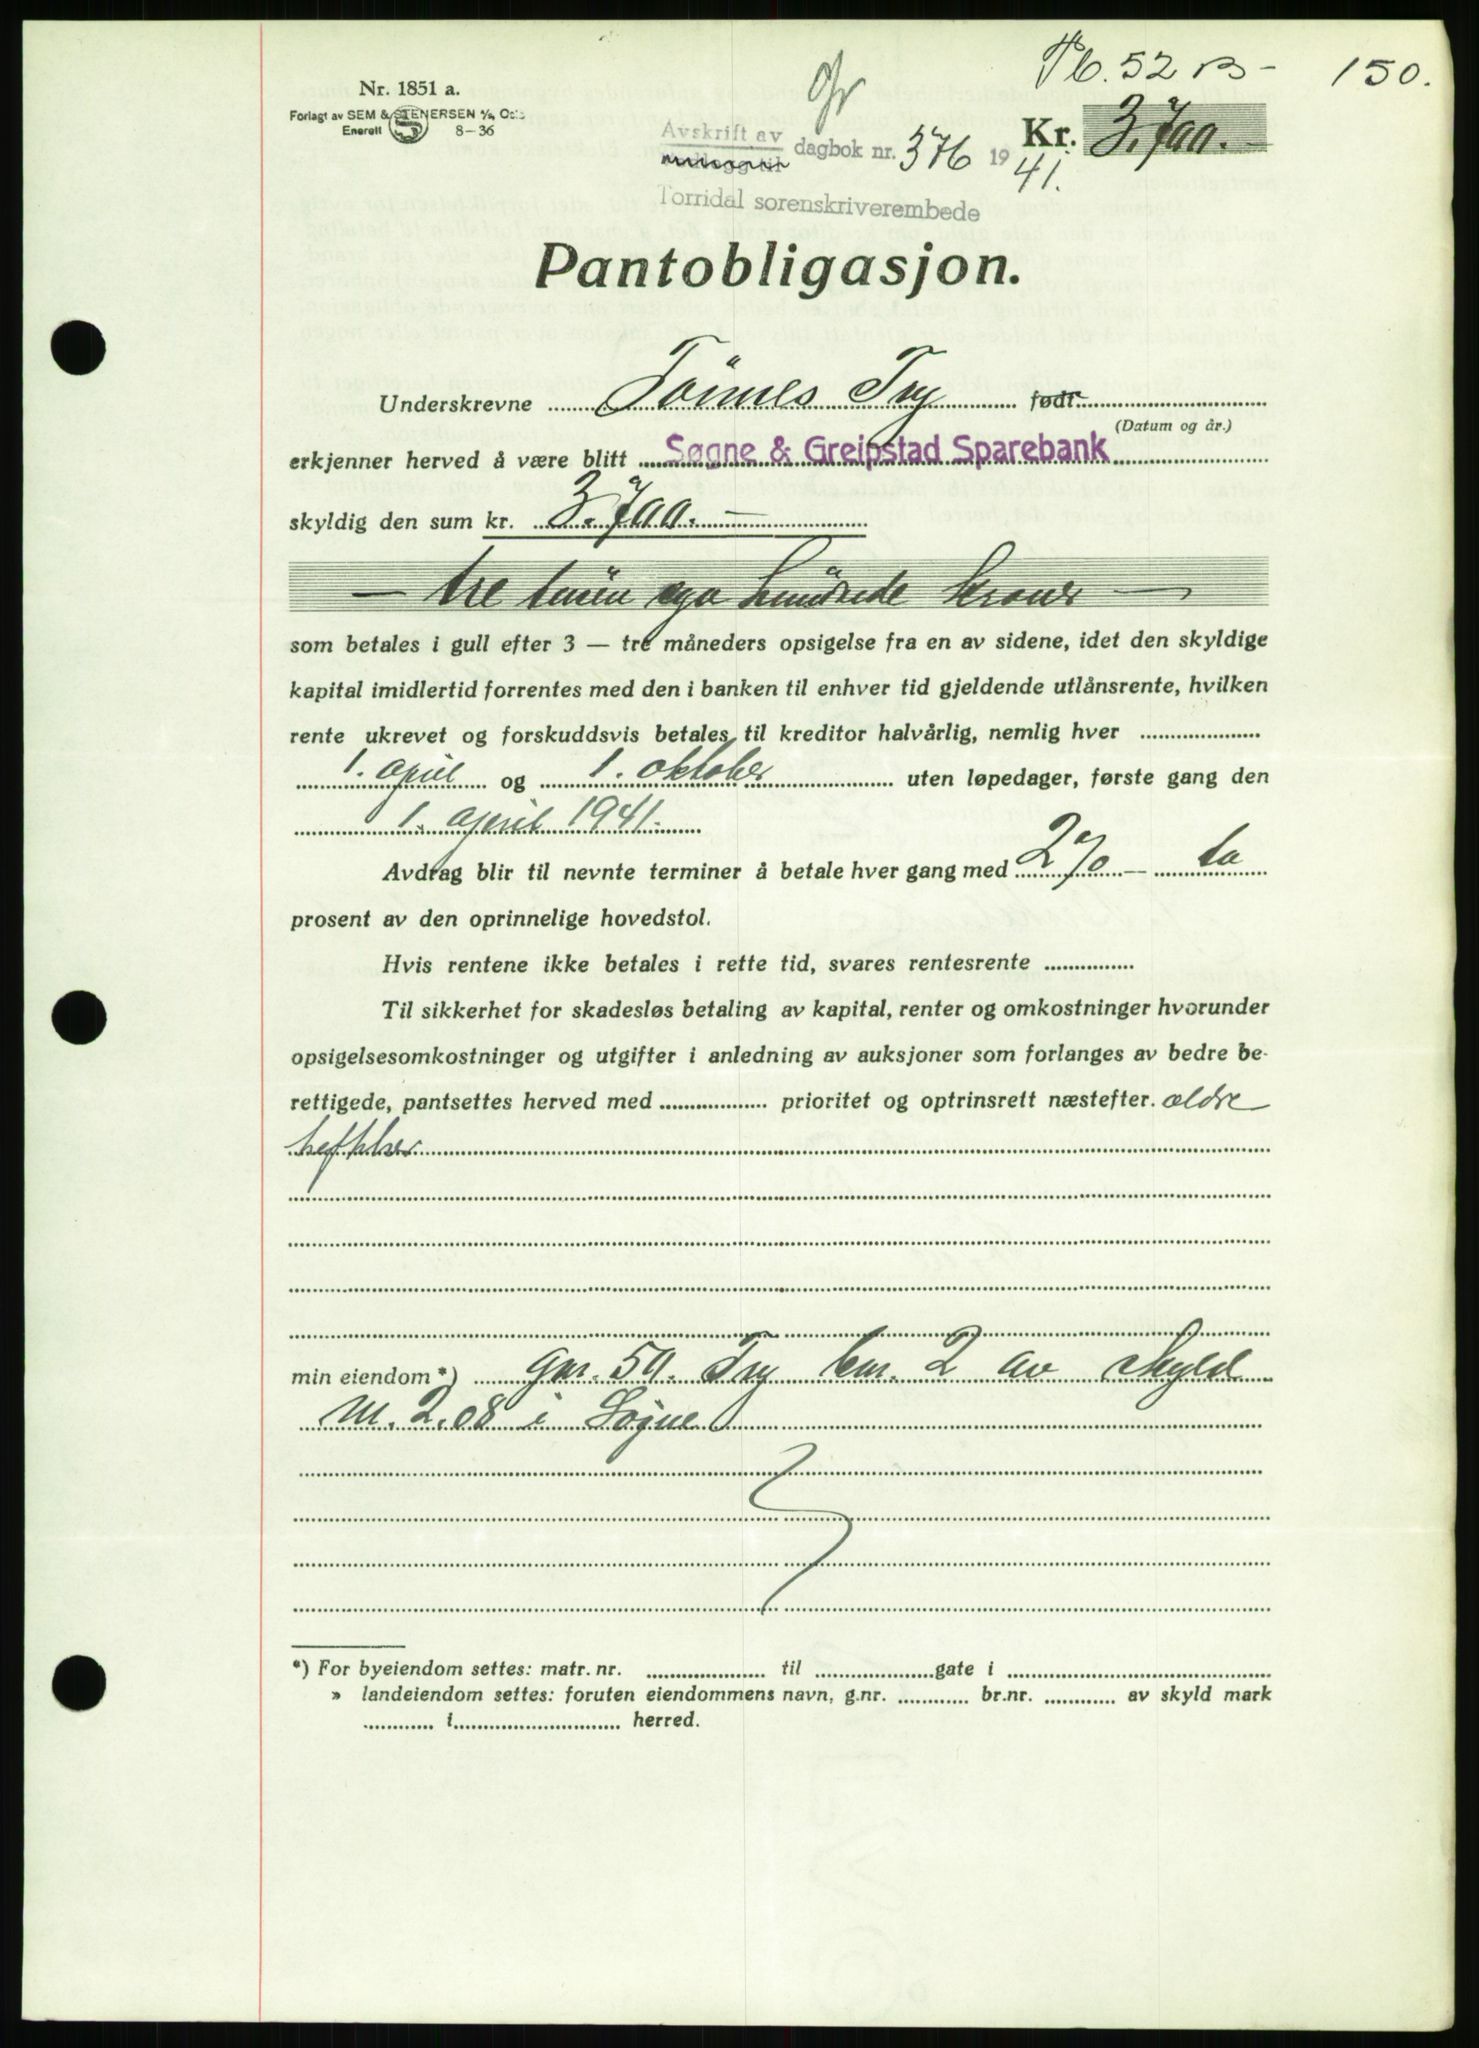 Pb. 52 B - 150.
Nr. 1851 a.
Forlagt av SEM & STENERSEN A/S, Oslo
Enerett 8-36
Avskrift av dagbok nr. 376 1941.
Kr. 3.700.-
Torridal sorenskriverembede
Pantobligasjon.
Underskrevne Tønnes Try født
(Datum og år.)
erkjenner herved å være blitt Søgne & Greipstad Sparebank
skyldig den sum kr. 3.700.-
- tre tusen syv hundrede kroner -
som betales i gull efter 3 — tre måneders opsigelse fra en av sidene, idet den skyldige
kapital imidlertid forrentes med den i banken til enhver tid gjeldende utlånsrente, hvilken
rente ukrevet og forskuddsvis betales til kreditor halvårlig, nemlig hver
1. april og 1. oktober uten løpedager, første gang den
1. april 1941.
Avdrag blir til nevnte terminer å betale hver gang med 2% - to
prosent av den oprinnelige hovedstol.
Hvis rentene ikke betales i rette tid, svares rentesrente
Til sikkerhet for skadesløs betaling av kapital, renter og omkostninger hvorunder
opsigelsesomkostninger og utgifter i anledning av auksjoner som forlanges av bedre be-
rettigede, pantsettes herved med prioritet og optrinsrett næstefter. ældre
heftelser
min eiendom *) gnr. 50. Try bnr. 2 av skyld
M. 2.08 i Søgne
*) For byeiendom settes: matr. nr. til gate i
» landeiendom settes: foruten eiendommens navn, g.nr. br.nr. av skyld mark
i herred.